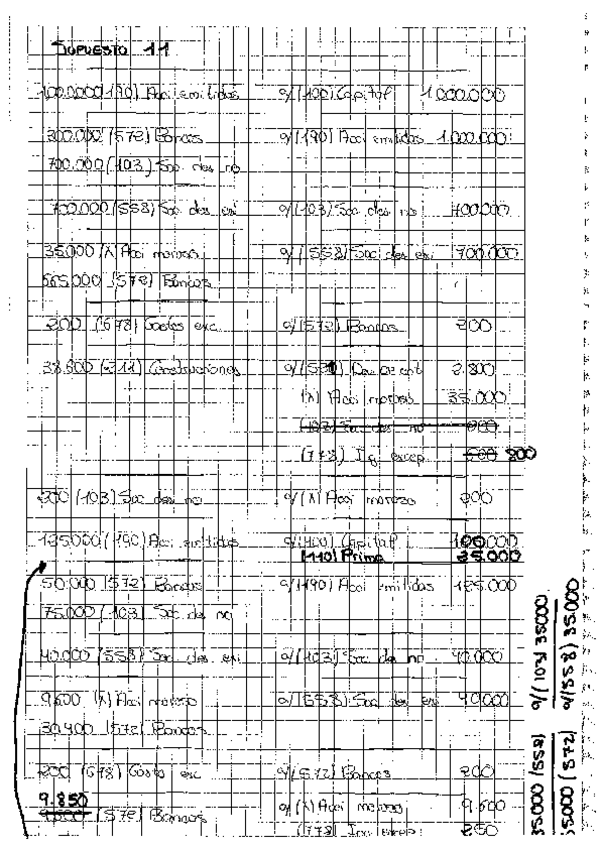 SUPUESTO 11
(190) Acci emitidas a/(100) Capital 1.000.000
300.000 (572) Bancos a/(190) Acci emitidas 1.000.000
700.000 (103) Soc. des no
700.000 (558) Soc des exi a/(103) Soc des no
35.000 (X) Acci morosos a/(558) Soc des exi 700.000
(572) Bancos
200 (678) Gastos exc a/(572) Bancos 200
(211) Construcciones 2.800
(X) Acci morosos 35.000
(103) Soc des no
(778) Ig excep 800
200 (103) Soc des no a/(X) Acci moroso 200
125.000 (190) Acci emitidas a/(100) Capital 100.000
(110) Prima 25.000
50.000 (572) Bancos a/(190) Acci emitidas 125.000
75.000 (103) Soc des no
40.000 (558) Soc des exi a/(103) Soc des no 40.000
9.600 (X) Acci moroso a/(558) Soc des exi 40.000
30.400 (572) Bancos
200 (678) Gasto exc a/(572) Bancos 200
9.850 (572) Bancos a/(X) Acci moroso 9.600
(778) 250
35.000 (558) a/(103) 35.000
35.000 (572) a/(558) 35.000